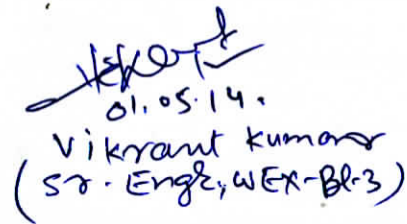 01.05.14.
Vikrant Kumar
(Sr. Engr, WEX-BL-3)